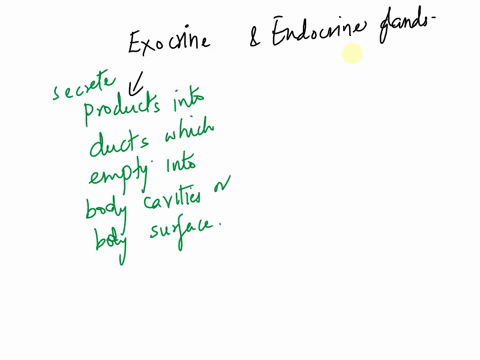 Exocrine & Endocrine glands-
secrete
products into
ducts which
empty into
body cavities or
body surface.